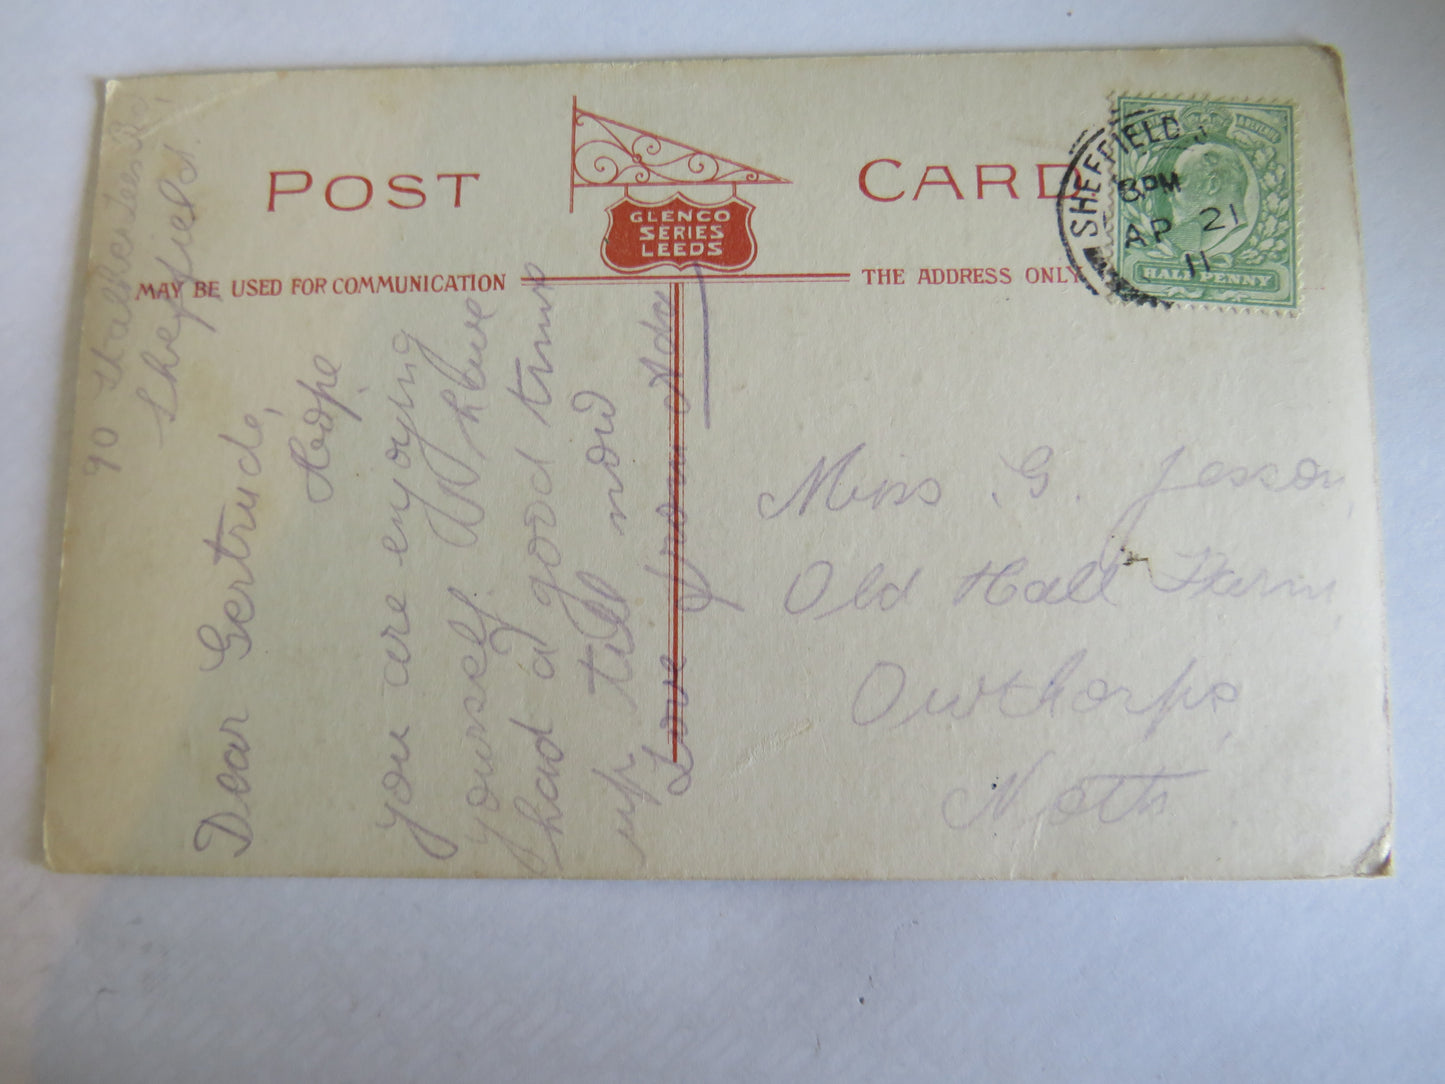 POST CARD
GLENCO
SERIES
LEEDS
MAY BE USED FOR COMMUNICATION
THE ADDRESS ONLY
SHEFFIELD
8 PM
AP 21
11
HALFPENNY
90
Sheffield.
Dear Gertrude,
Hope
you are enjoying
yourself. We have
had a good time
up till now
Love from Ada
Miss. G. Jesson,
Old Hall Farm,
Owthorpe,
Notts